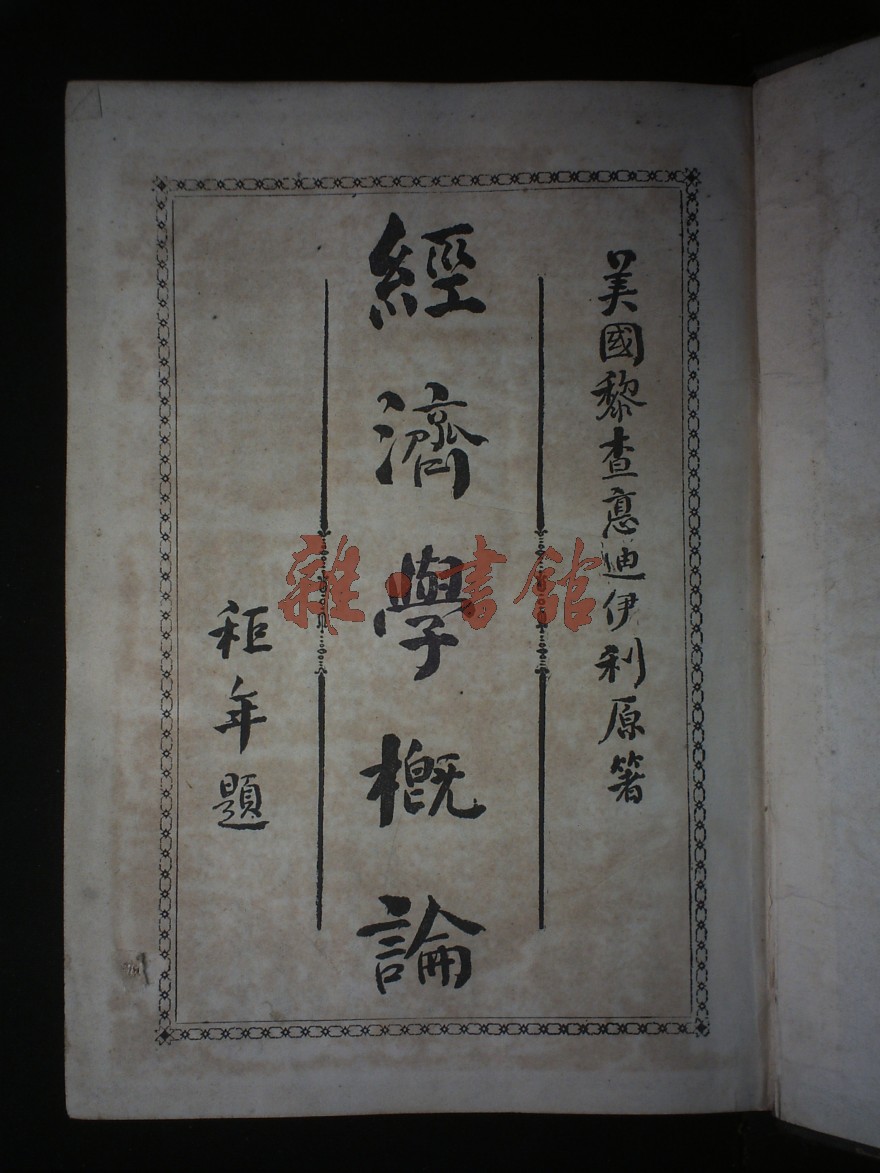 美國黎查悳迪伊利原箸
經濟學概論
秬年題
雜·書館